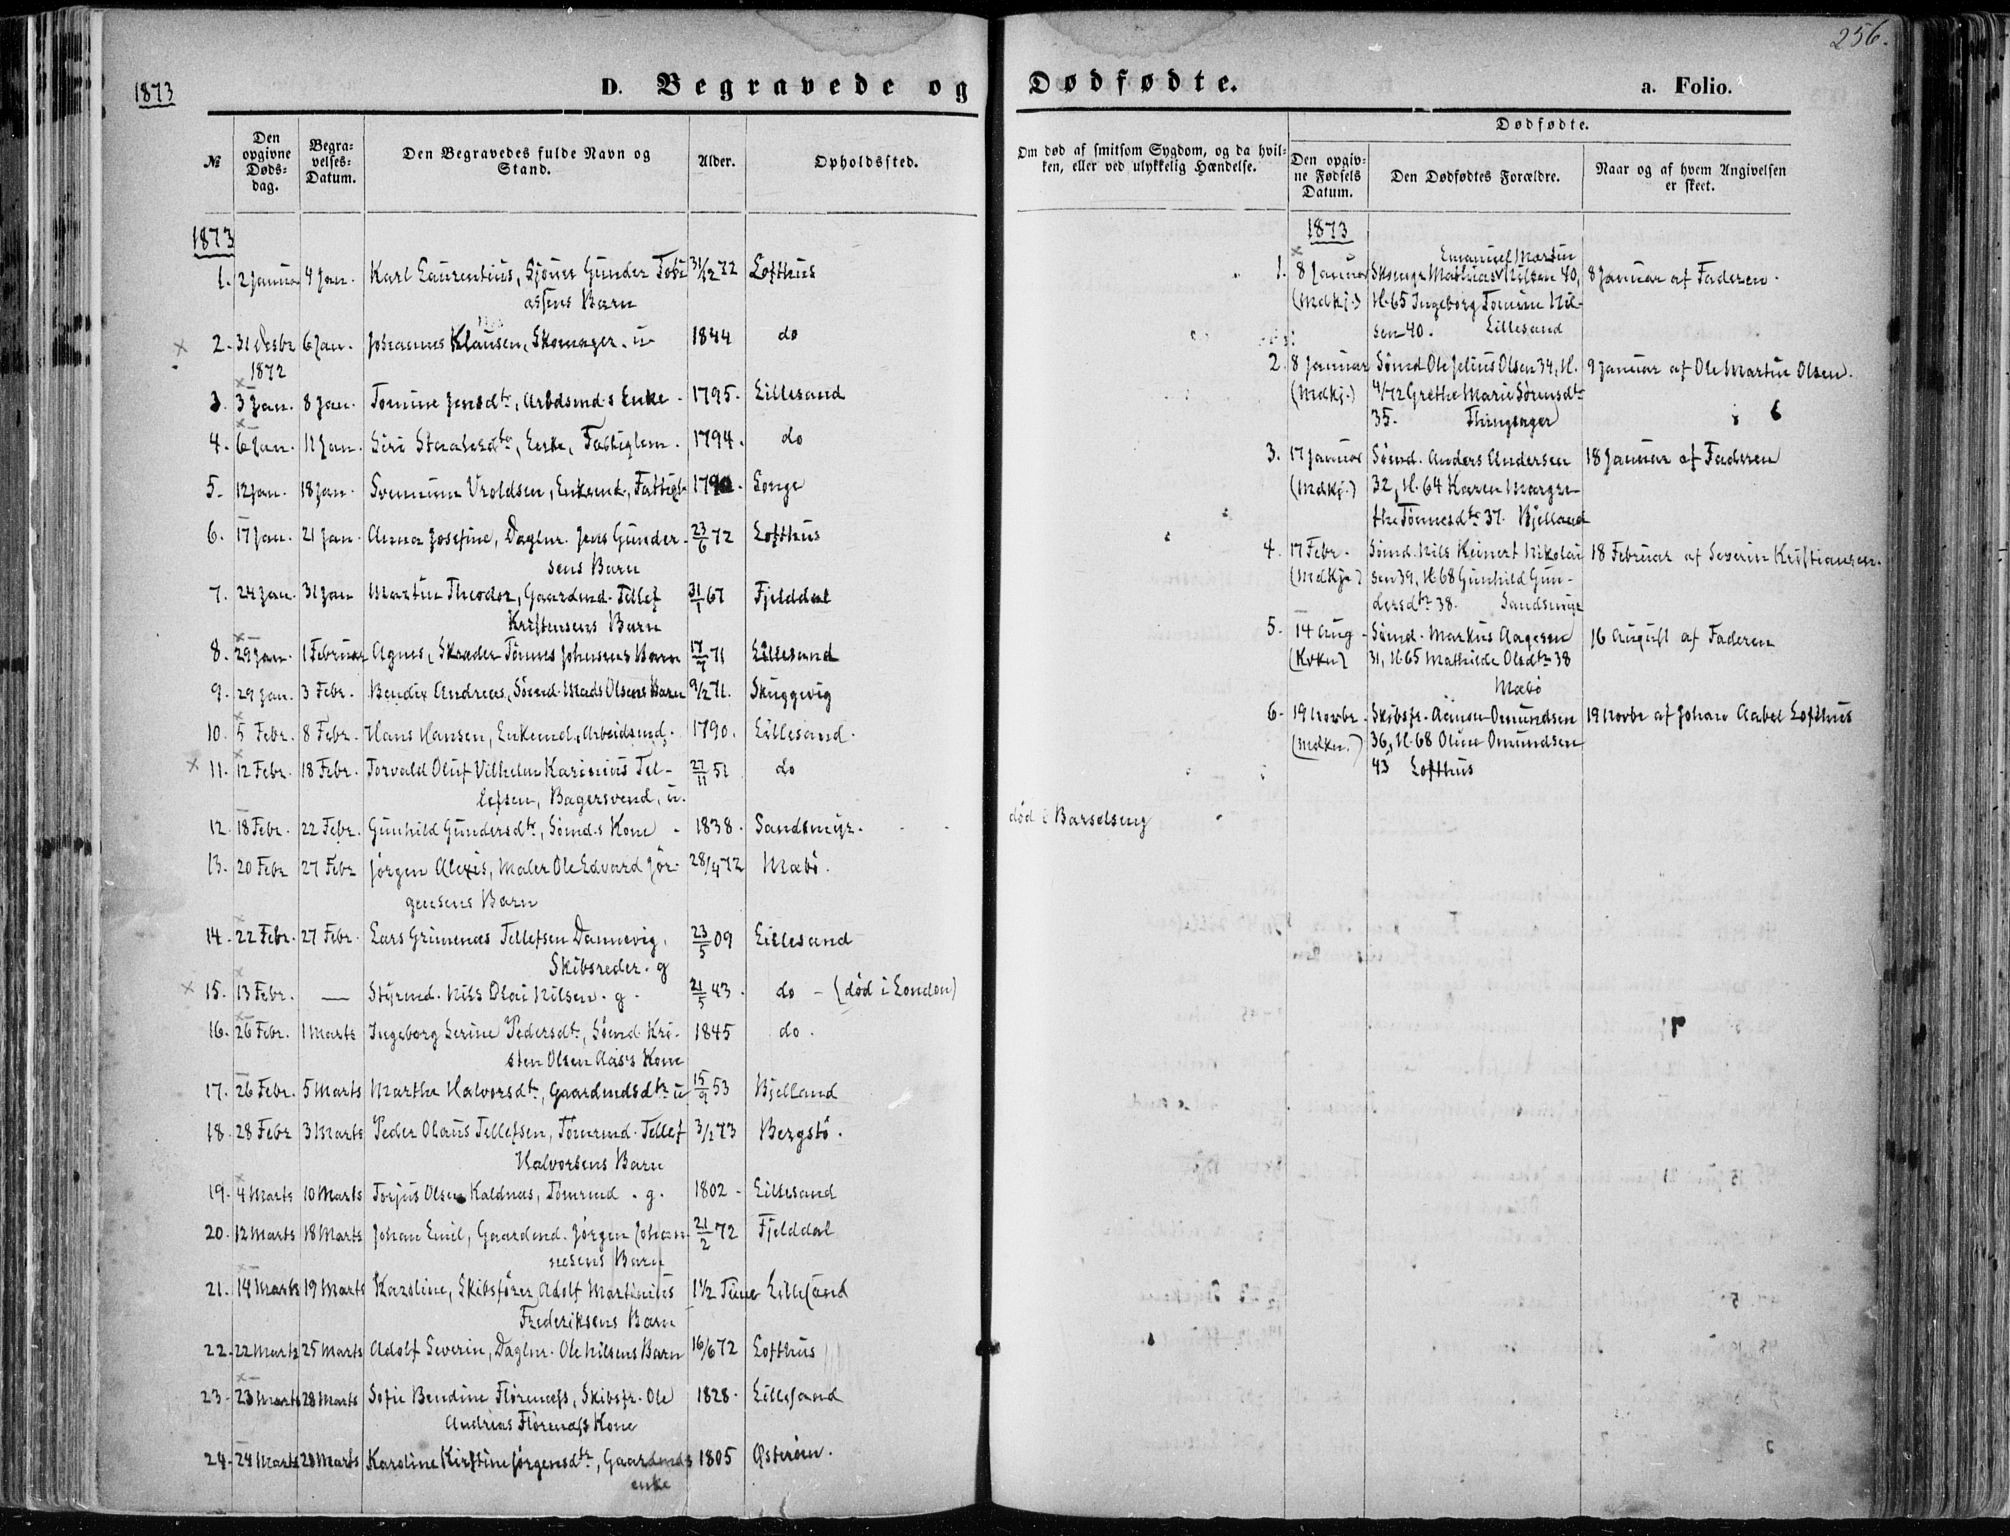 256.
1873
D. Begravede og Dødfødte.
a. Folio.
№
Den opgivne Døds-dag.
Begra-velses-Datum.
Den Begravedes fulde Navn og Stand.
Alder.
Opholdssted.
Om død af smitsom Sygdom, og da hvil-
ken, eller ved ulykkelig Hændelse.
Dødfødte.
Den opgiv-ne Fødsels Datum.
Den Dødfødtes Forældre.
Naar og af hvem Angivelsen er skeet.
1873
1. 2 Januar 4 Jan. Karl Laurentius, Sjøm Gunder Tobi 31/12 72 Lofthus
assens Barn
2. 31 Desbr 6 Jan. Johannes Klausen, Skomager. u 1844 do
1872
3. 3 Jan. 8 Jan. Tomine Jensdtr, Arbdsmd.s Enke 1795. Lillesand
4. 6 Jan. 11 Jan. Siri Staalesdtr, Enke, Fattiglem. 1794. do
5. 12 Jan. 18 Jan. Uroldsen, Enkemd, Fattigl. Longe
6. 17 Jan. 21 Jan. Anna Josefine, Daglnr. Jens Gunder- 23/6 72 Lofthus
sens Barn
7. 24 Jan. 31 Jan Martin Theodor, Gaardmd. Tellef 31/1 67 Fjelddal
Kristensens Barn
8. 29 Jan. 1 Februar Agnes, Skræder Tønnes Johnsens Barn 17/7 71 Lillesand
9. 29 Jan. 3 Febr. Bendix Andreas, Sømd. Mads Olsens Barn 9/2 71. Skuggevig
10. 5 Febr. 8 Febr. Hans Hansen, Enkemd, Arbeidsmd. 1790. Lillesand.
11. 12 Febr. 18 Febr. Torvald Oluf Vilhelm Karinius Tel- 27/11 51 do
lefsen, Bagersvend, u.
12. 18 Febr. 22 Febr. Gunhild Gundersdtr, Sømd.s Kone 1838. Sandsmyr. død i Barselseng
13. 20 Febr 27 Febr Jørgen Alexis, Maler Ole Edvard Jør- 28/4 72 Mæbø.
gensens Barn
14. 22 Febr. 27 Febr. Lars Grimenæs Tellefsen Dannevig, 23/5 09 Lillesand
Skibsreder. g
15. 13 Febr. — Styrmd. Nils Olai Nilsen. g. 21/5 43. do - (død i London)
16. 26 Febr. 1 Marts Ingeborg Serine Pedersdtr, Sømd. Kri- 1845 do.
sten Olsen Aas's Kone
17. 26 Febr. 5 Marts Marthe Halvorsdtr, Gaardmdsdtr u 15/9 53 Bjelland
18. 28 Febr 3 Marts Peder Olaus Tellefsen, Tømmd. Tellef 3/2 73 Bergstø.
Halvorsens Barn
19. 4 Marts 10 Marts Torjus Olsen Kaldnæs, Tømmd. g. 1802. Lillesand
20. 12 Marts 18 Marts Johan Emil, Gaardmd. Jørgen Johan- 21/2 72 Fjelddal
nesens Barn
21. 14 Marts 19 Marts Karoline, Skibsfører Adolf Martinius 1 1/2 Time Lillesand
Frederiksens Barn
22. 22 Marts 25 Marts Adolf Severin, Daglnr. Ole Nilsens Barn 16/6 72 Lofthus
23. 23 Marts 28 Marts Sofie Bendine Flørenæss, Skibsfr. Ole 1828. Lillesand
Andreas Flørenæss Kone
24. 24 Marts 28 Marts Karoline Kirstine Jørgensdtr, Gaardmds 1805 Østerøen.
enke
1873
Emanuel Martin
1. 8 Januar Skomgr Mathias Nilsen 40, 8 Januar af Faderen.
(Mdkj.) H.65 Ingeborg Tomine Nil-
sen 40. Lillesand
2. 8 Januar Sømd Ole Jelius Olsen 34, H. 9 Januar af Ole Martin Olsen.
(Mdkj.) 4/72 Grethe Marie Sørensdtr
35. Thingsager
3. 17 Januar Sømd. Anders Andersen 18 Januar af Faderen
(Mdkj.) 32, H.64 Karen Margre-
the Tønnesdtr 37. Bjelland
4. 17 Febr. Sømd. Nils Reinert Nikolai 18 Februar af Severin Kristiansen.
(Mdkj.) sen 39, H.68 Gunhild Gun-
dersdtr 38. Sandsmyr
5. 14 Aug. Sømd. Markus Aagesen 16 August af Faderen
(Kvkn) 31, H.65 Mathilde Olsdtr 38
Mæbø
6. 19 Novbr. Skibsfr. Aanon Omundsen 19 Novbr af Johan Aabel Lofthus
(Mdkn.) 36, H.68 Oline Omundsen
43 Lofthus